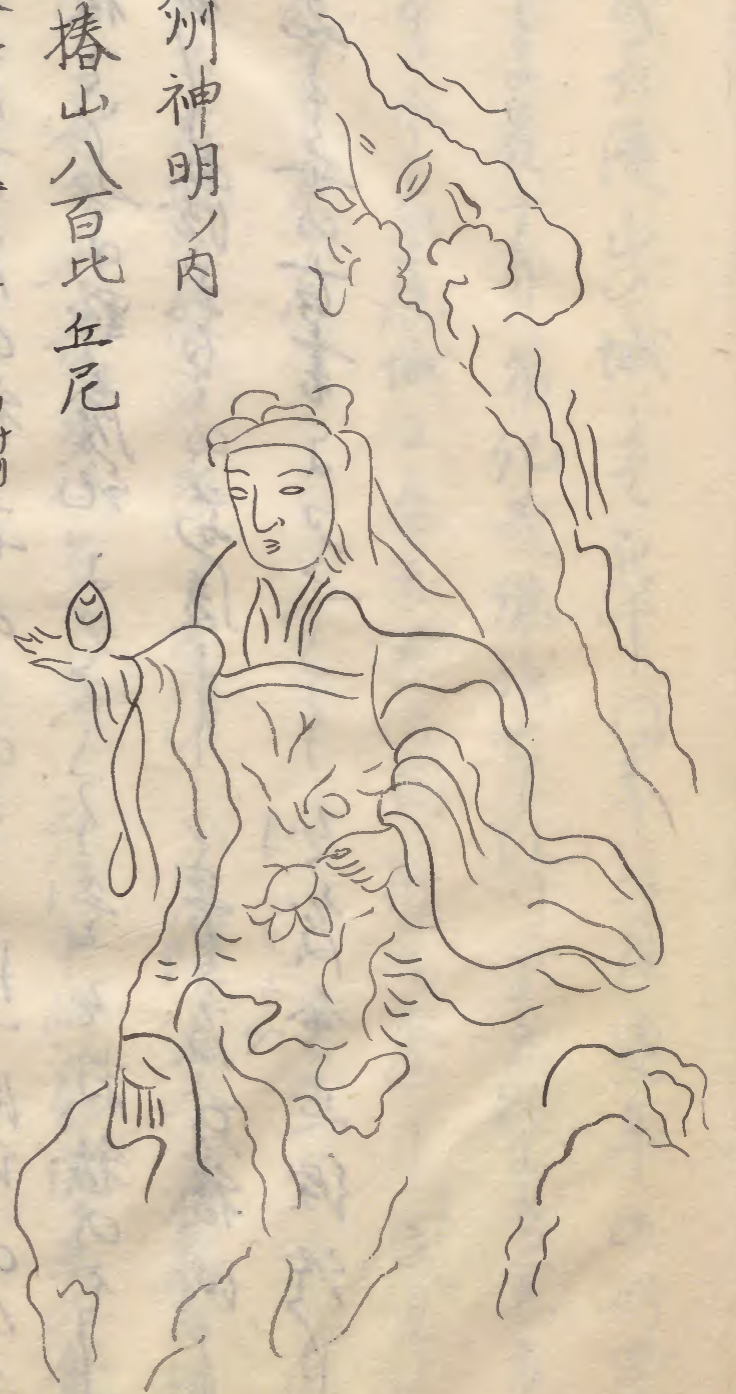 州神明ノ内
椿山八百比丘尼